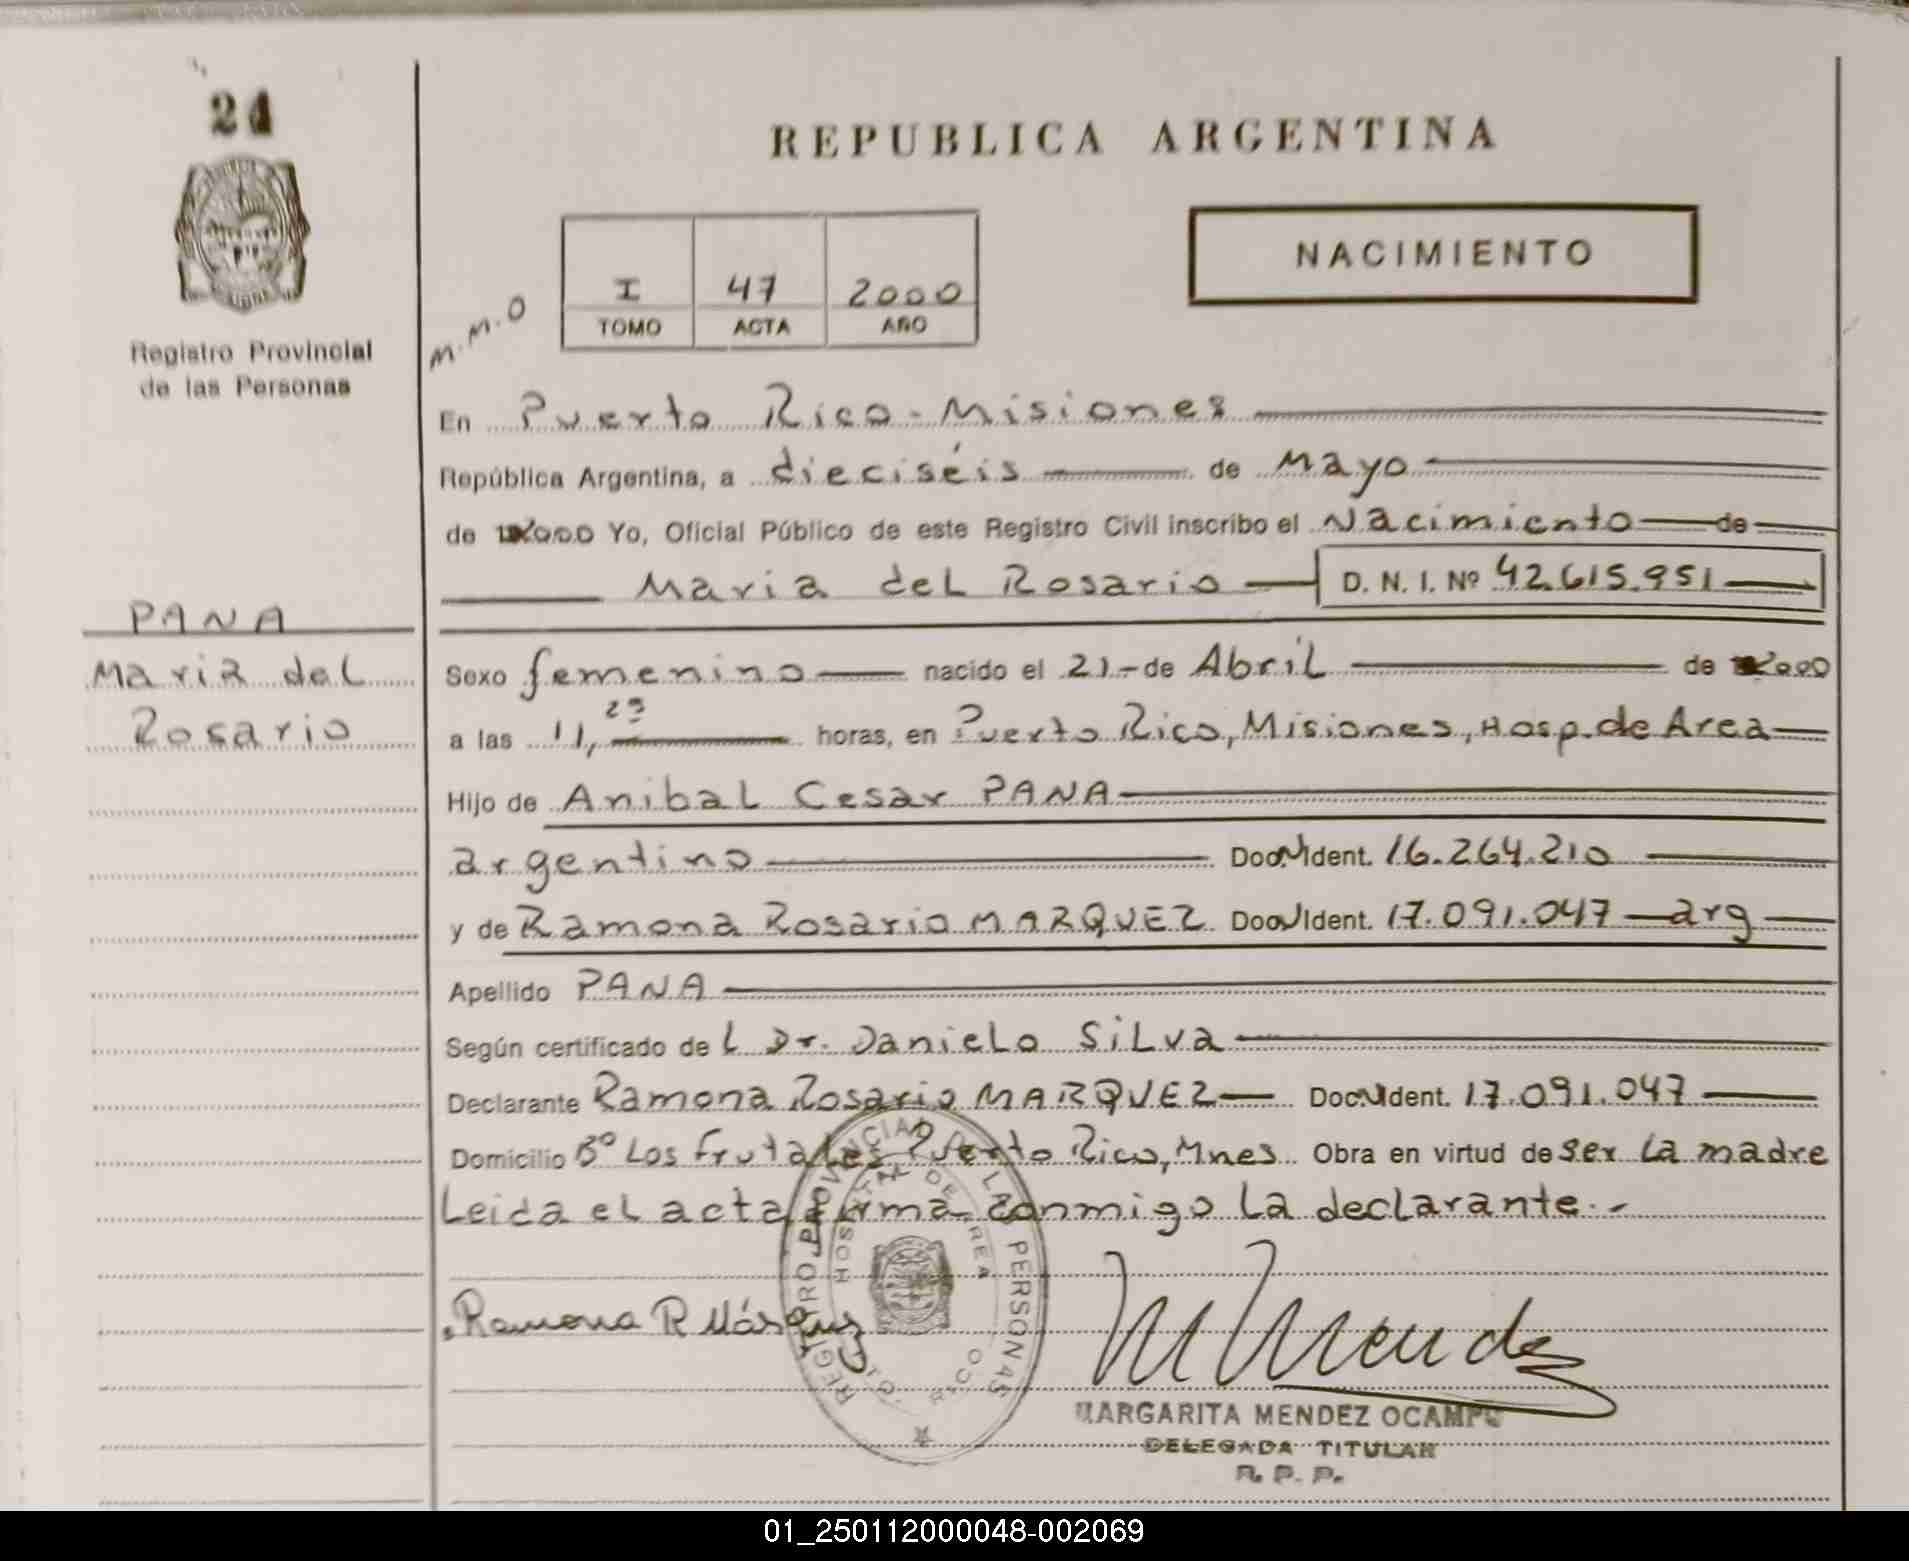 24
REPUBLICA ARGENTINA
NACIMIENTO
I 47 2000
TOMO ACTA AÑO
M.M.O
Registro Provincial
de las Personas
En Puerto Rico - Misiones
República Argentina, a dieciséis de Mayo
de 2000 Yo, Oficial Público de este Registro Civil inscribo el Nacimiento de
Maria del Rosario D. N. I. Nº 42.615.951
PANA
Maria del
Rosario
Sexo femenino nacido el 21 - de Abril de 2000
a las 11, horas, en Puerto Rico, Misiones, Hosp. de Area
Hijo de Anibal Cesar PANA
argentino Doc. Ident. 16.264.210
y de Ramona Rosario MARQUEZ Doc. Ident. 17.091.047 arg
Apellido PANA
Según certificado de L Dr. Daniel Silva
Declarante Ramona Rosario MARQUEZ Doc. Ident. 17.091.047
Domicilio Bº Los Frutales Puerto Rico, Mnes Obra en virtud de ser la madre
Leida el acta firma conmigo la declarante.-
REGISTRO PROVINCIAL DE LAS PERSONAS
HOSPITAL DE AREA
PTO. RICO
Ramona R Márquez
M Mendez
MARGARITA MENDEZ OCAMPO
DELEGADA TITULAR
R. P. P.
01_250112000048-002069